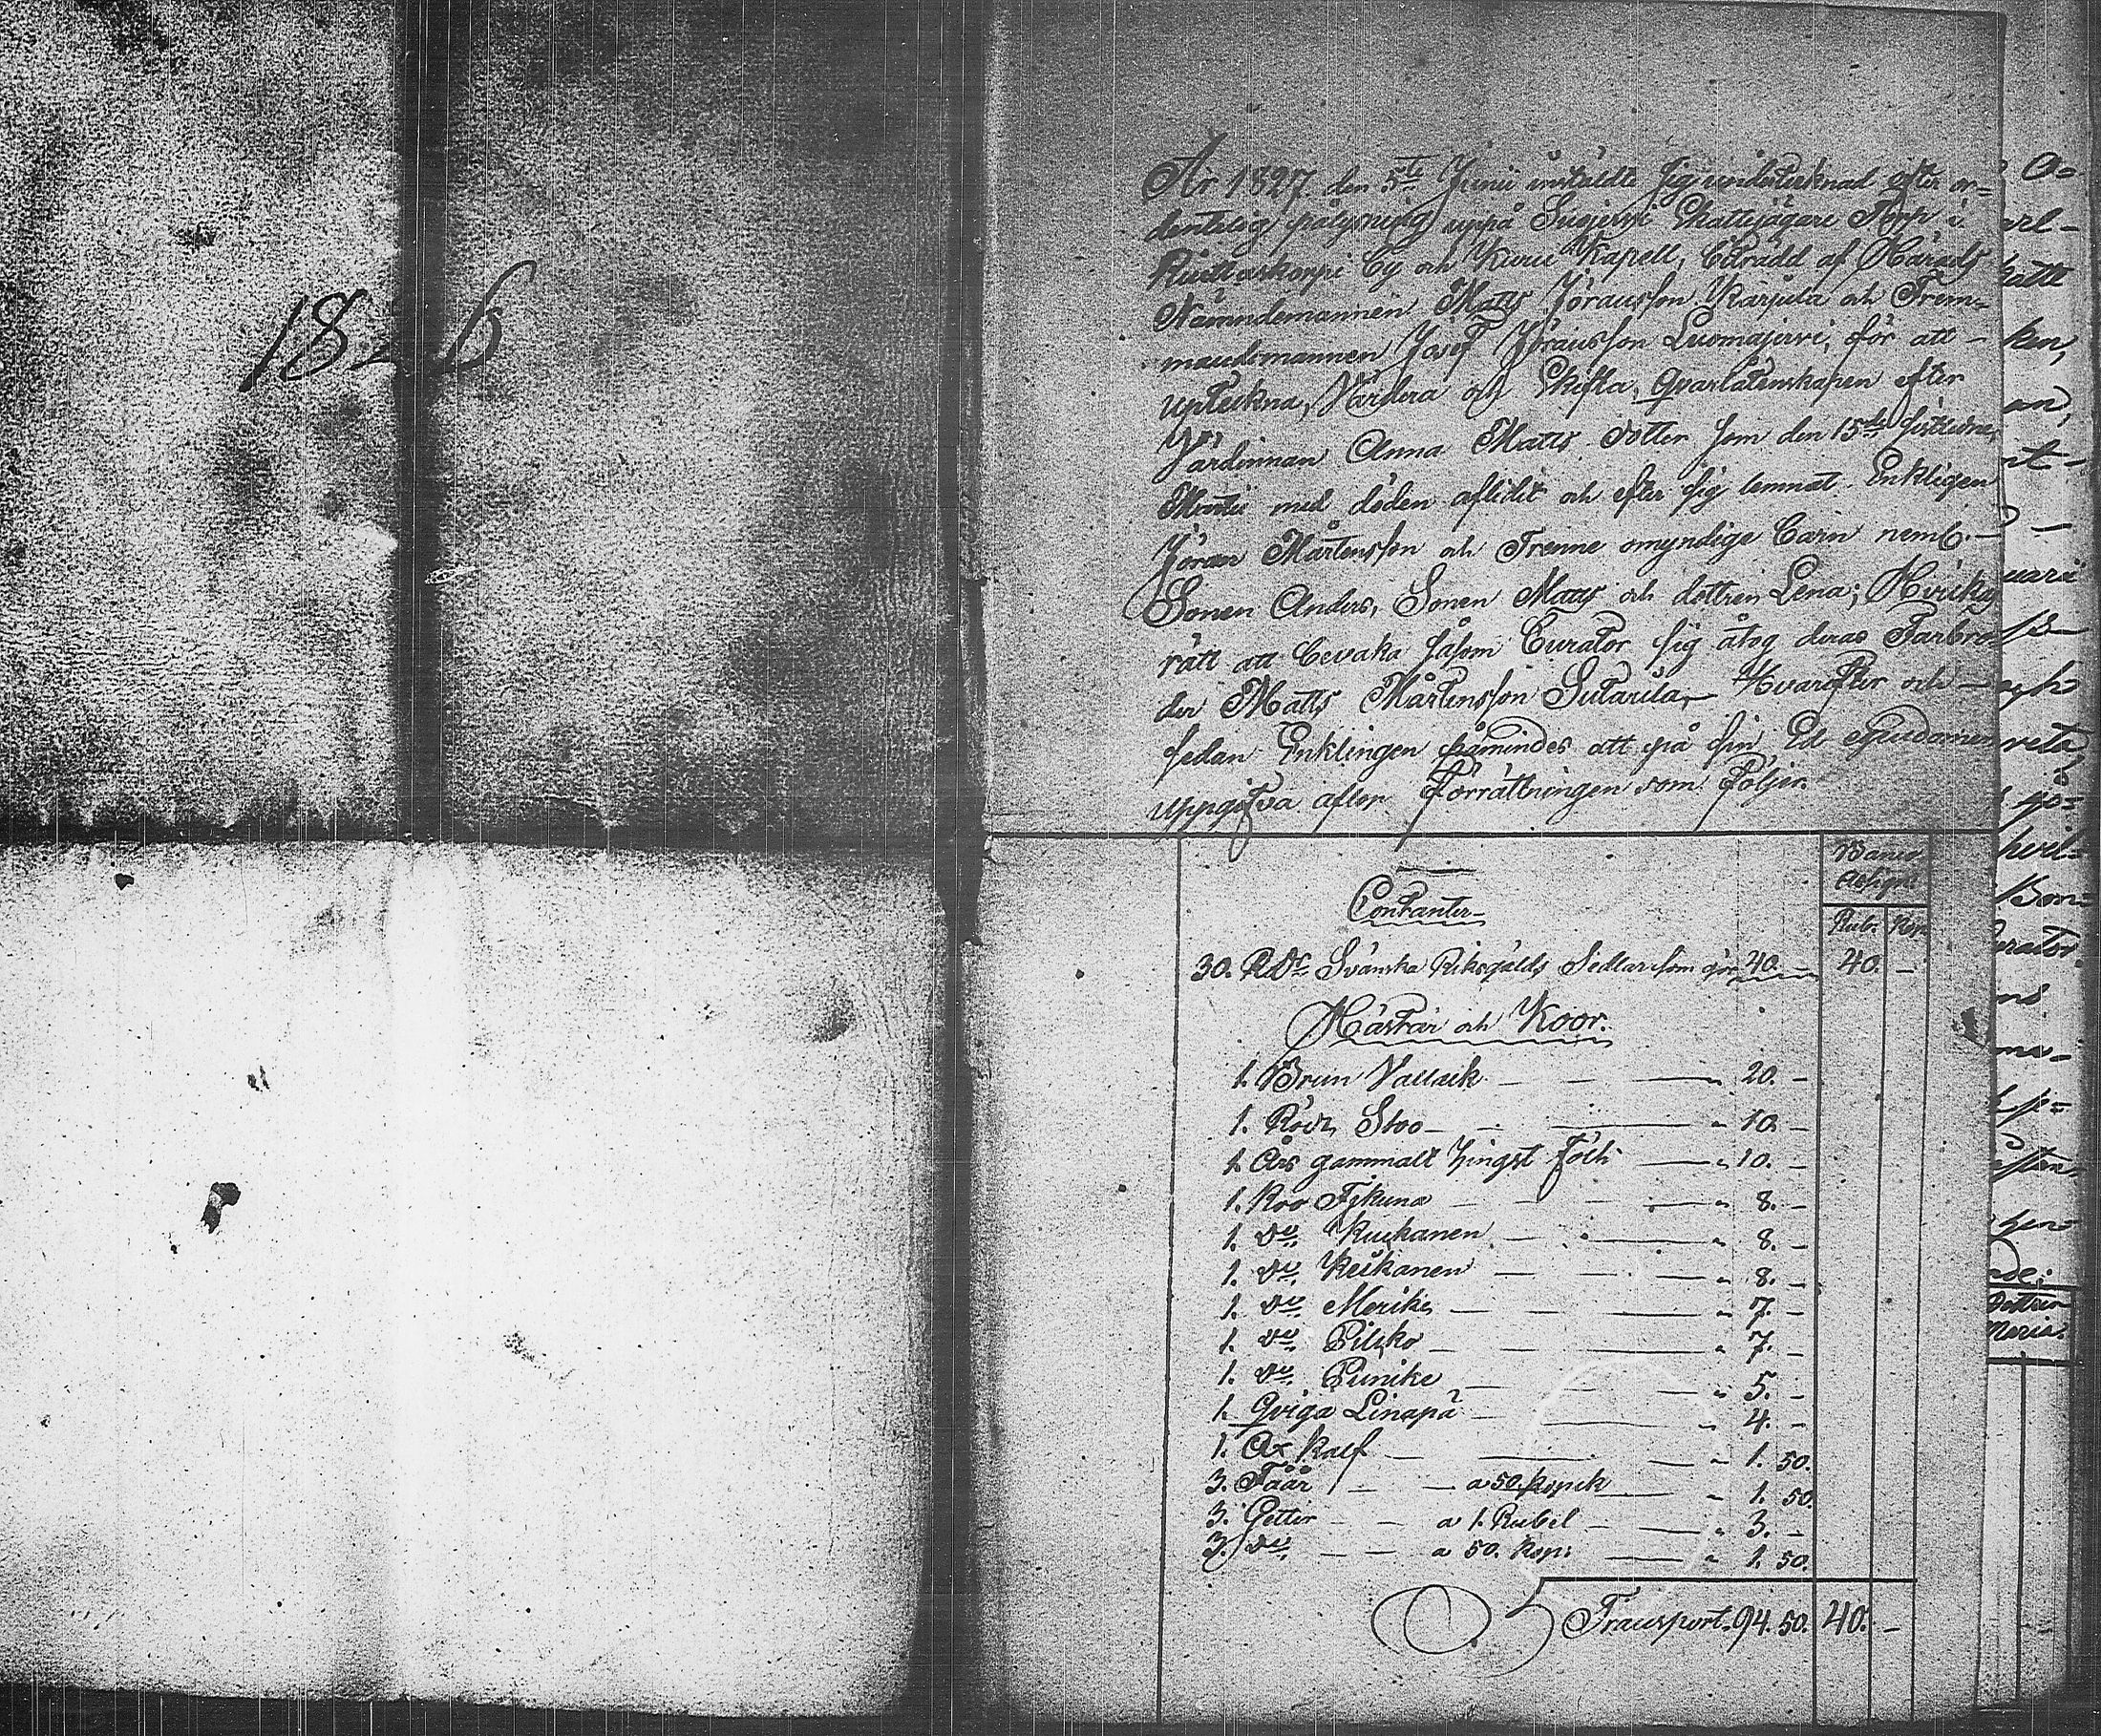 1826
År 1827 den 5te Junii instäldte Jag undertecknad efter or-
dentelig pålysning uppå Sugjervi Skattejägare Torp i
Ruettaskorpi By och Kuru Kapell, biträdd af Härads
Nämndemannen Matts Jöransson Karjula och Frem-
mandemannen Josef Jöransson Luomajervi, för att -
upteckna, Värdera och Skifta Qvarlåtenskapen efter
Värdinnan Anna Matts dotter som den 15de sistledne
Martii med döden aflidit och efter sig lemnat Enklingen
Jöran Mårtensson och Trenne omyndige barn neml. -
Sonen Anders, Sonen Matts och dottren Lena; Hvilkas
rätt att bevaka såsom Curator sig åtog deras Farbro
der Matts Mårtensson Sutarila, Hvarefter och -
sedan Enklingen påmindes att på sin Ed
uppgifva aflop Förrättningen som Följer.
Banco
Assign:
Contanter
Rub. Kop.
30. RDr Svänska Riksgälds Sedlar som gör 40. - 40. -
Hästar och Koor.
1. Brun Vallack 20. -
1. Röd Stoo 10. -
1. Års gammalt hingst Föhl 10. -
1. Koo Tykunä 8. -
1. do Kuukanen 8. -
1. do Keikanen 8. -
1. do Merike 7. -
1. do Pilsko 7. -
1. do Punike 5. -
1. Qviga Linapä 4. -
1. Ox kalf 1. 50.
3. Fåår a 50. kopek 1. 50.
3. Getter a 1. Rubel 3. -
3. do a 50. kop: 1. 50.
Transport. 94. 50. 40. -